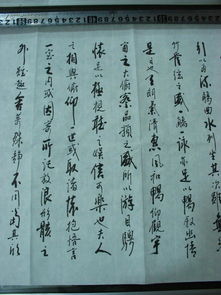 引以為流觴曲水列坐其次雖無
竹管弦之盛一觴一詠亦足以暢敘幽情
是日也天朗氣清惠風和暢仰觀宇
宙之大俯察品類之盛所以遊目騁
懷足以極視聽之娛信可樂也夫人
之相與俯仰一世或取諸懷抱悟言
一室之內或因寄所託放浪形骸之
外雖趣舍萬殊靜躁不同當其欣